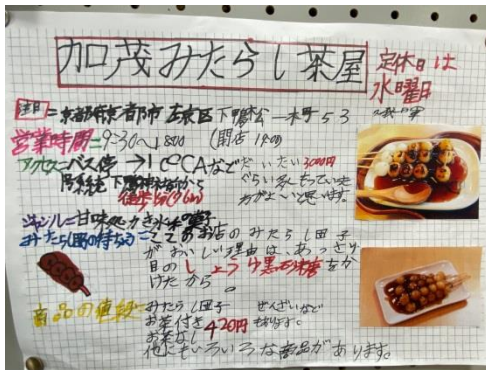 加茂みたらし茶屋
定休日は
水曜日
住所=京都府京都市左京区下鴨松一木町53
営業時間=9:30~1800 (閉店19:00)
アクセス=バス停→ICOCAなど だいたい3000円
ぐらい多くもっていた
方がよいと思います。
下鴨神社前から
徒歩1分
ジャンル=甘味処 かき氷 和菓子
みたらし団子の特ちょう=このお店のみたらし団子
がおいしい理由は、あっさり
目のしょうゆ黒砂糖をか
けたから。
商品の値段 みたらし団子 ぜんざいなど
お茶付き420円 もあります。
お茶なし
他にもいろいろな商品があります。